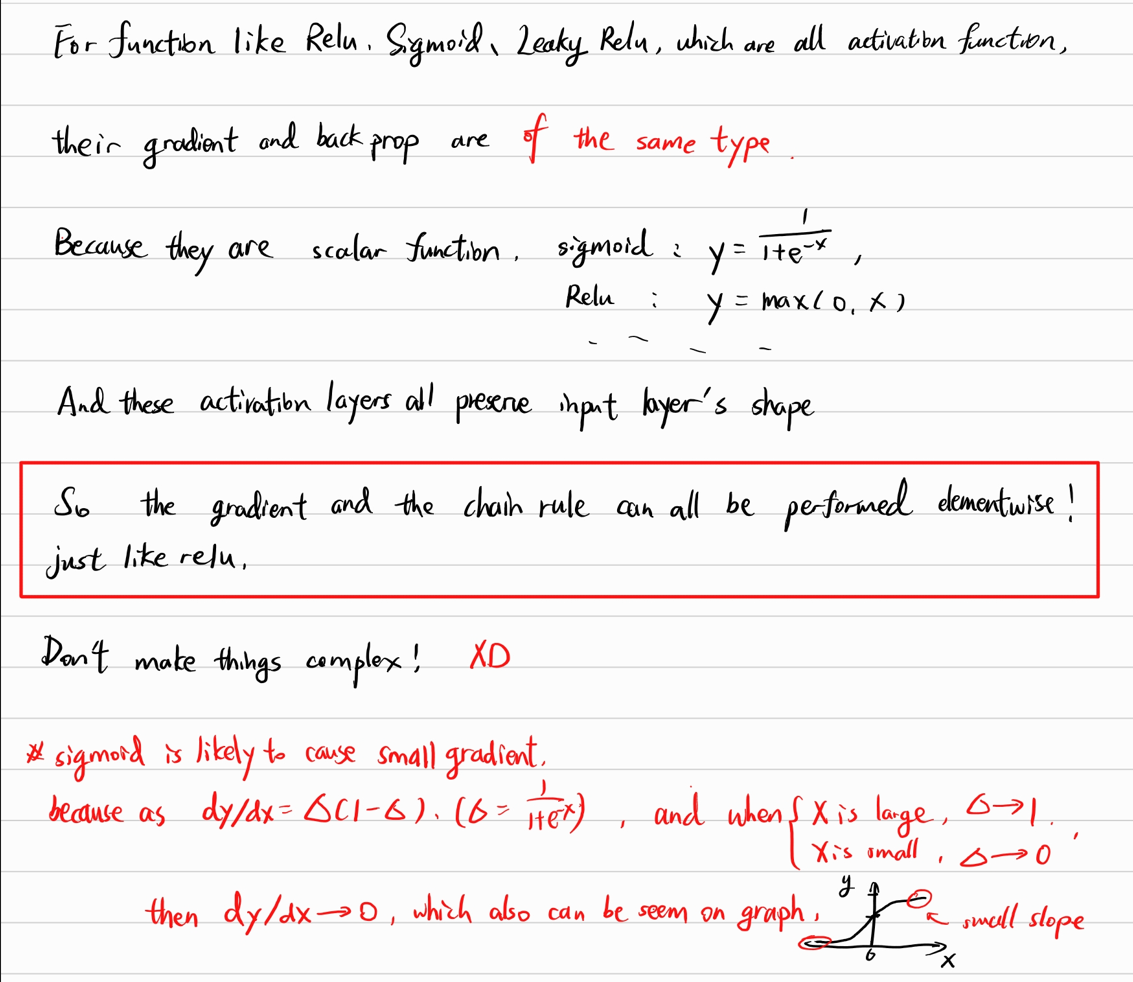 For function like Relu, Sigmoid、Leaky Relu, which are all activation function,
their gradient and backprop are of the same type.
Because they are scalar function. sigmoid : y = 1/(1+e^-x) ,
Relu : y = max(0, x)
And these activation layers all preserve input layer's shape
So the gradient and the chain rule can all be performed elementwise!
just like relu.
Don't make things complex! XD
* sigmoid is likely to cause small gradient.
because as dy/dx = δ(1-δ). (δ = 1/(1+e^-x)) , and when { X is large, δ→1.
X is small, δ→0 ,
then dy/dx→0, which also can be seem on graph.
y
small slope
0
x